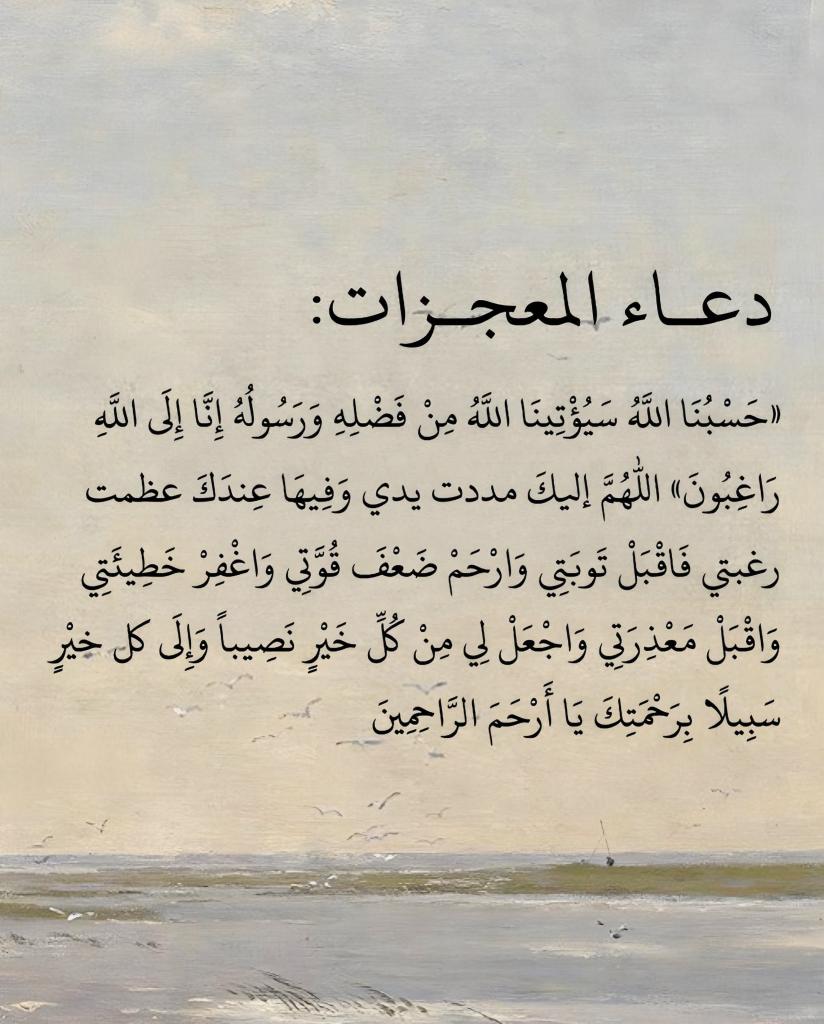 دعـــاء المعجـــزات:
«حَسْبُنَا اللَّهُ سَيُؤْتِينَا اللَّهُ مِنْ فَضْلِهِ وَرَسُولُهُ إِنَّا إِلَى اللَّهِ
رَاغِبُونَ» اللّٰهُمَّ إليكَ مددت يدي وَفِيهَا عِندَكَ عظمت
رغبتي فَاقْبَلْ تَوبَتِي وَارْحَمْ ضَعْفَ قُوَّتِي وَاغْفِرْ خَطِيئَتِي
وَاقْبَلْ مَعْذِرَتِي وَاجْعَلْ لِي مِنْ كُلِّ خَيْرٍ نَصِيباً وَإِلَى كل خيْرٍ
سَبِيلًا بِرَحْمَتِكَ يَا أَرْحَمَ الرَّاحِمِينَ